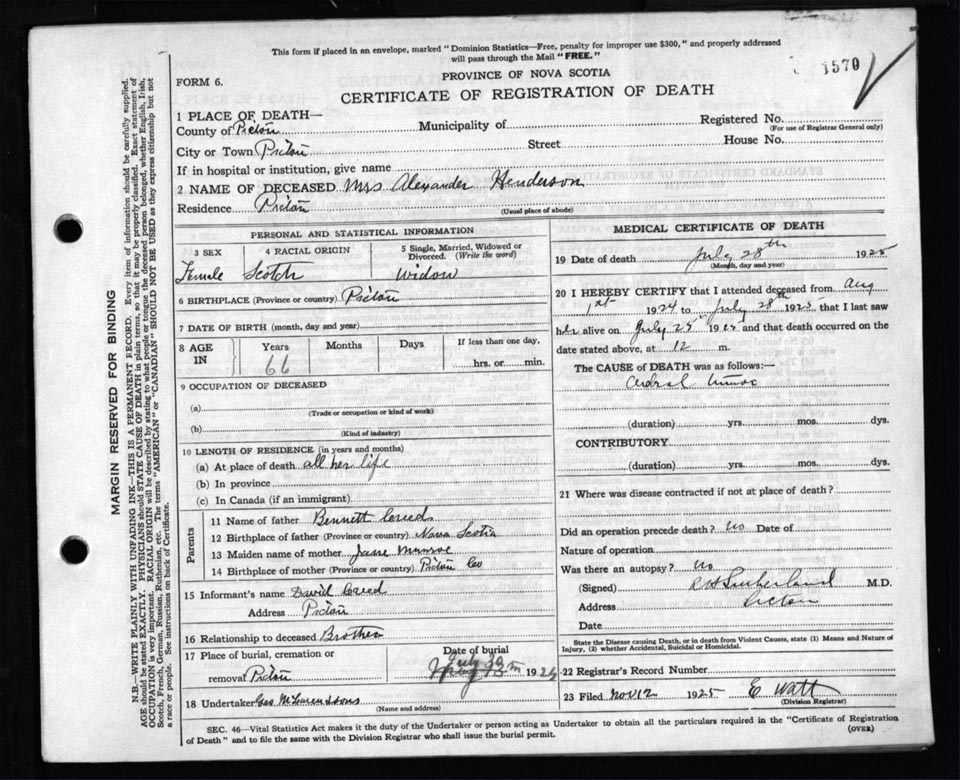 This form if placed in an envelope, marked "Dominion Statistics—Free, penalty for improper use $300," and properly addressed
will pass through the Mail "FREE."
1570
FORM 6.
PROVINCE OF NOVA SCOTIA
CERTIFICATE OF REGISTRATION OF DEATH
1 PLACE OF DEATH—
County of Pictou Municipality of Registered No.
(For use of Registrar General only)
City or Town Pictou Street House No.
If in hospital or institution, give name
2 NAME OF DECEASED Mrs Alexander Henderson
Residence Pictou
(Usual place of abode)
PERSONAL AND STATISTICAL INFORMATION
3 SEX
Female
4 RACIAL ORIGIN
Scotch
5 Single, Married, Widowed or
Divorced. (Write the word)
Widow
6 BIRTHPLACE (Province or country) Pictou
7 DATE OF BIRTH (month, day and year)
8 AGE
IN
Years
66
Months
Days
If less than one day,
hrs. or min.
9 OCCUPATION OF DECEASED
(a)
(Trade or occupation or kind of work)
(b)
(Kind of industry)
10 LENGTH OF RESIDENCE (in years and months)
(a) At place of death all her life
(b) In province
(c) In Canada (if an immigrant)
Parents
11 Name of father Bennett Creed
12 Birthplace of father (Province or country) Nova Scotia
13 Maiden name of mother Jane Munroe
14 Birthplace of mother (Province or country) Pictou Co
15 Informant's name David Creed
Address Pictou
16 Relationship to deceased Brother
17 Place of burial, cremation or
removal Pictou
Date of burial
July 192
18 Undertaker Geo & Sons
(Name and address)
MEDICAL CERTIFICATE OF DEATH
19 Date of death July 28th 1925
(Month, day and year)
20 I HEREBY CERTIFY that I attended deceased from Aug
1st 1924 to July 28th 1925 that I last saw
her alive on July 1925 and that death occurred on the
date stated above, at 12 m.
The CAUSE of DEATH was as follows:—
(duration) yrs. mos. dys.
CONTRIBUTORY
(duration) yrs. mos. dys.
21 Where was disease contracted if not at place of death?
Did an operation precede death? no Date of
Nature of operation
Was there an autopsy? no
(Signed) Sutherland M.D.
Address Pictou
Date
State the Disease causing Death, or in death from Violent Causes, state (1) Means and Nature of
Injury, (2) whether Accidental, Suicidal or Homicidal.
22 Registrar's Record Number
23 Filed Nov 12 1925 E Watt
(Division Registrar)
SEC. 46—Vital Statistics Act makes it the duty of the Undertaker or person acting as Undertaker to obtain all the particulars required in the "Certificate of Registration
of Death" and to file the same with the Division Registrar who shall issue the burial permit.
(OVER)
MARGIN RESERVED FOR BINDING
N.B.—WRITE PLAINLY WITH UNFADING INK—THIS IS A PERMANENT RECORD. Every item of information should be carefully supplied.
AGE should be stated EXACTLY. PHYSICIANS should STATE CAUSE OF DEATH in plain terms, so that it may be properly classified. Exact statement of
OCCUPATION is very important. RACIAL ORIGIN will be described by stating to what people or tongue the deceased person belonged, whether English, Irish,
Scotch, French, German, Russian, Ruthenian, etc. The terms "AMERICAN" or "CANADIAN" SHOULD NOT BE USED as they express citizenship but not
a race or people. See instructions on back of Certificate.